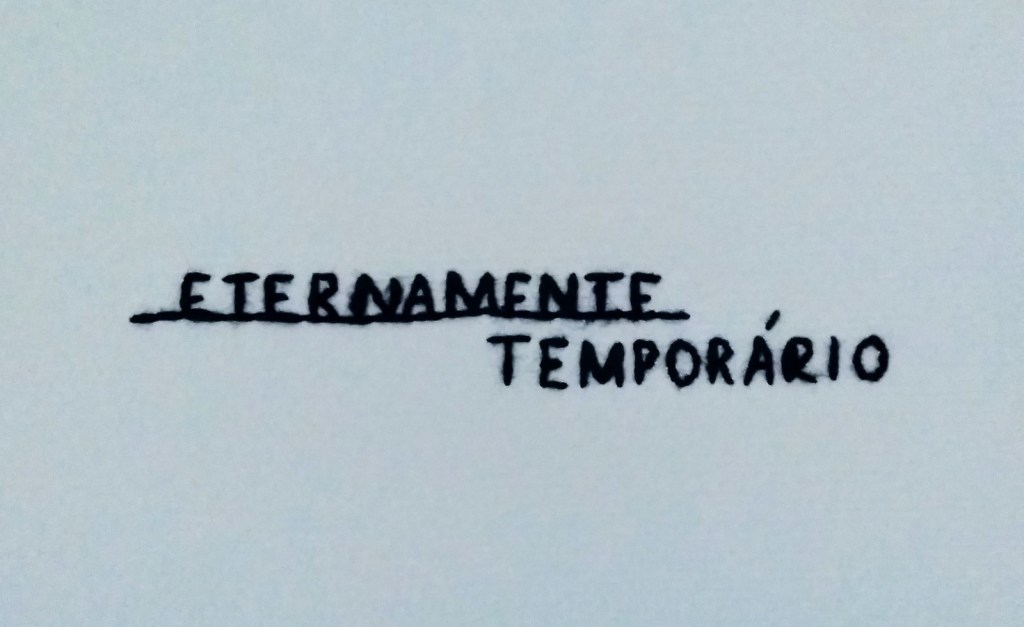 ETERNAMENTE
TEMPORÁRIO